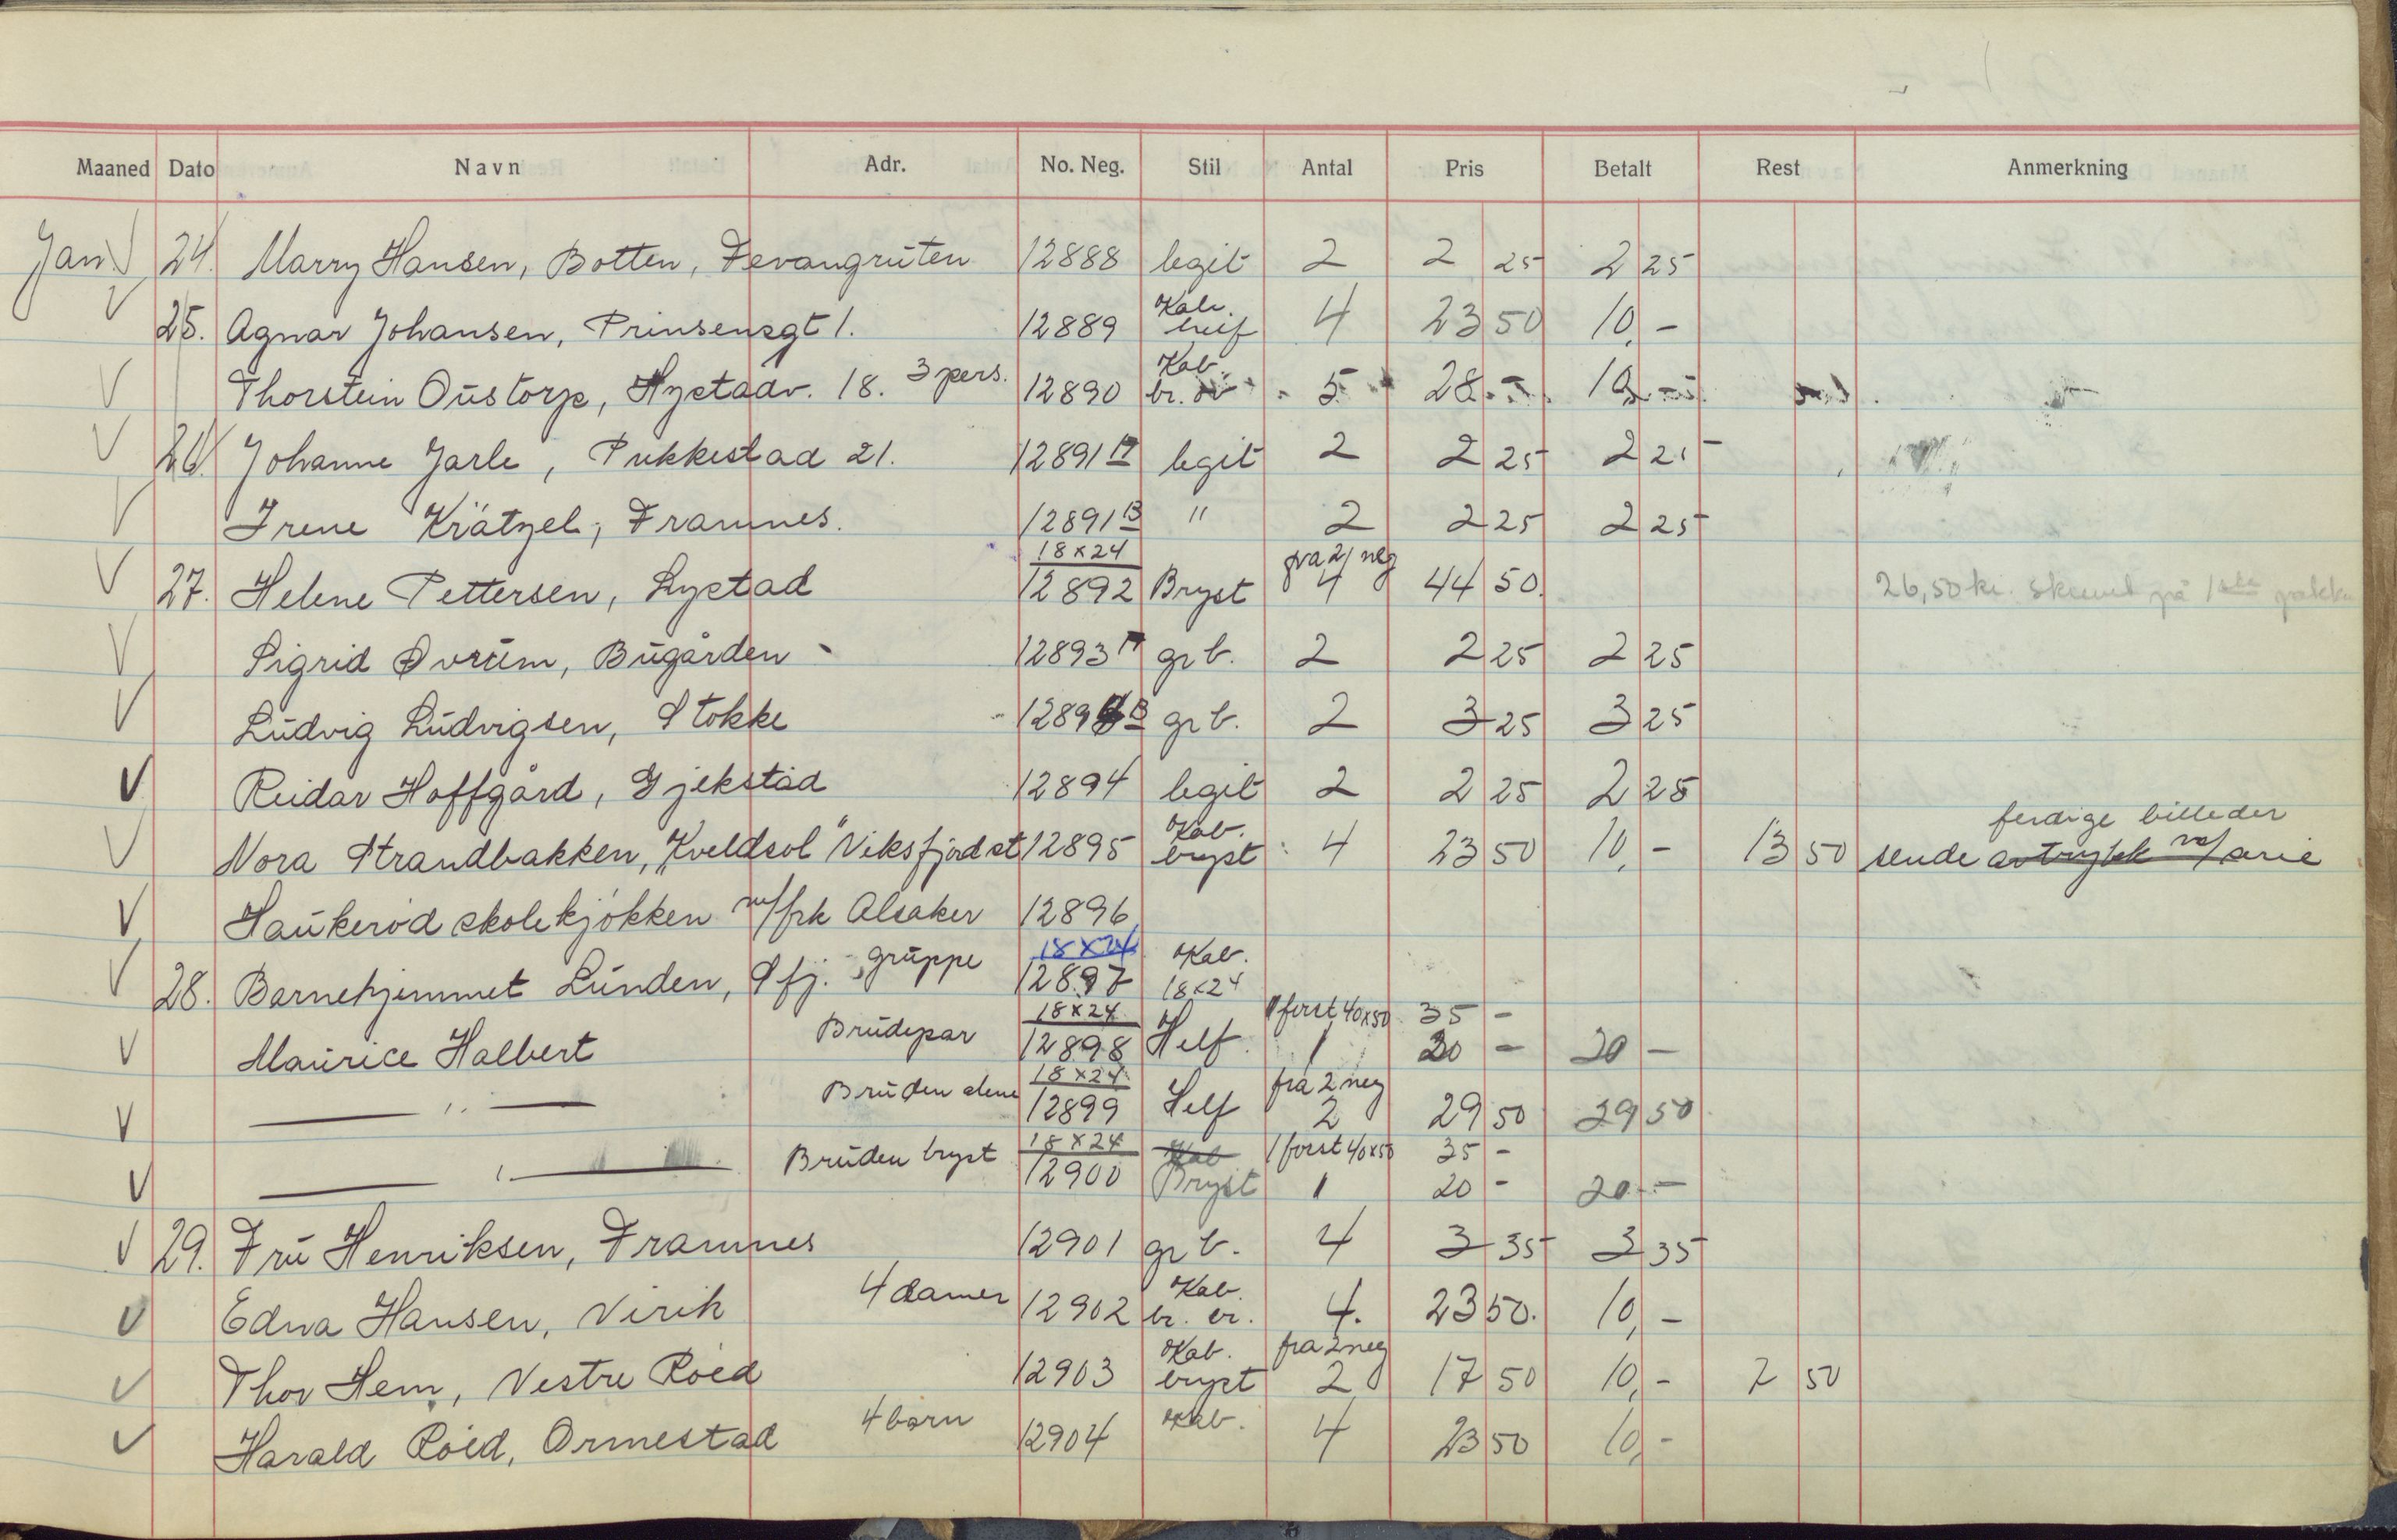 Maaned Dato Navn Adr. No. Neg. Stil Antal Pris Betalt Rest Anmerkning
Jan. V 24. Marry Hansen, Botten, Tevangruten 12888 legit 2 2 25 2 25
V 25. Agnar Johansen, Prinsensgt 1. 12889 Kab. 4 23 50 10,-
V Thorstein Oustorp, Hystadv. 18. 3 pers. 12890 Kab. br. 5 28 - 10 -
V 26. Johanne Jarle, Pukkestad 21. 12891 A legit 2 2 25 2 25
V Irene Krätzel, Framnes. 12891 B " 2 2 25 2 25
V 27. Helene Pettersen, Lystad 18x24 12892 Bryst fra 2 neg 4 44 50. 26,50 kr. på 1ste
V Sigrid Øvrum, Bugården - 12893 A gr b. 2 2 25 2 25
V Ludvig Ludvigsen, Stokke 12893 B gr b. 2 3 25 3 25
V Reidar Hoffgård, Gjekstad 12894 legit 2 2 25 2 25
V Nora Strandbakken, "Kveldsol" Viksfjord st 12895 Kab. bryst 4 23 50 10,- 13 50 ferdige billeder
sende avtrykk
V Haukerød skolekjøkken v/frk Alsaker 12896
V 28. Barnehjemmet Lunden, Sfj. gruppe 18x24 12897 Kab. 18x24
V Maurice Halbert Brudepar 18x24 12898 Helf. 1 forst 40x50 35 -
1 20 - 20 -
V — " — Bruden alene 18x24 12899 Helf fra 2 neg 2 29 50 29 50
V — " — Bruden bryst 18x24 12900 Kab Bryst 1 forst 40x50 35 -
1 20 - 20 -
V 29. Fru Henriksen, Framnes 12901 gr b. 4 3 35 3 35
V Edna Hansen, Virik 4 damer 12902 Kab. br. br. 4. 23 50. 10,-
V Thor Hem, Vestre Røed 12903 Kab. bryst fra 2 neg 2 17 50 10,- 7 50
V Harald Røed, Ormestad 4 barn 12904 Kab. 4 23 50 10,-